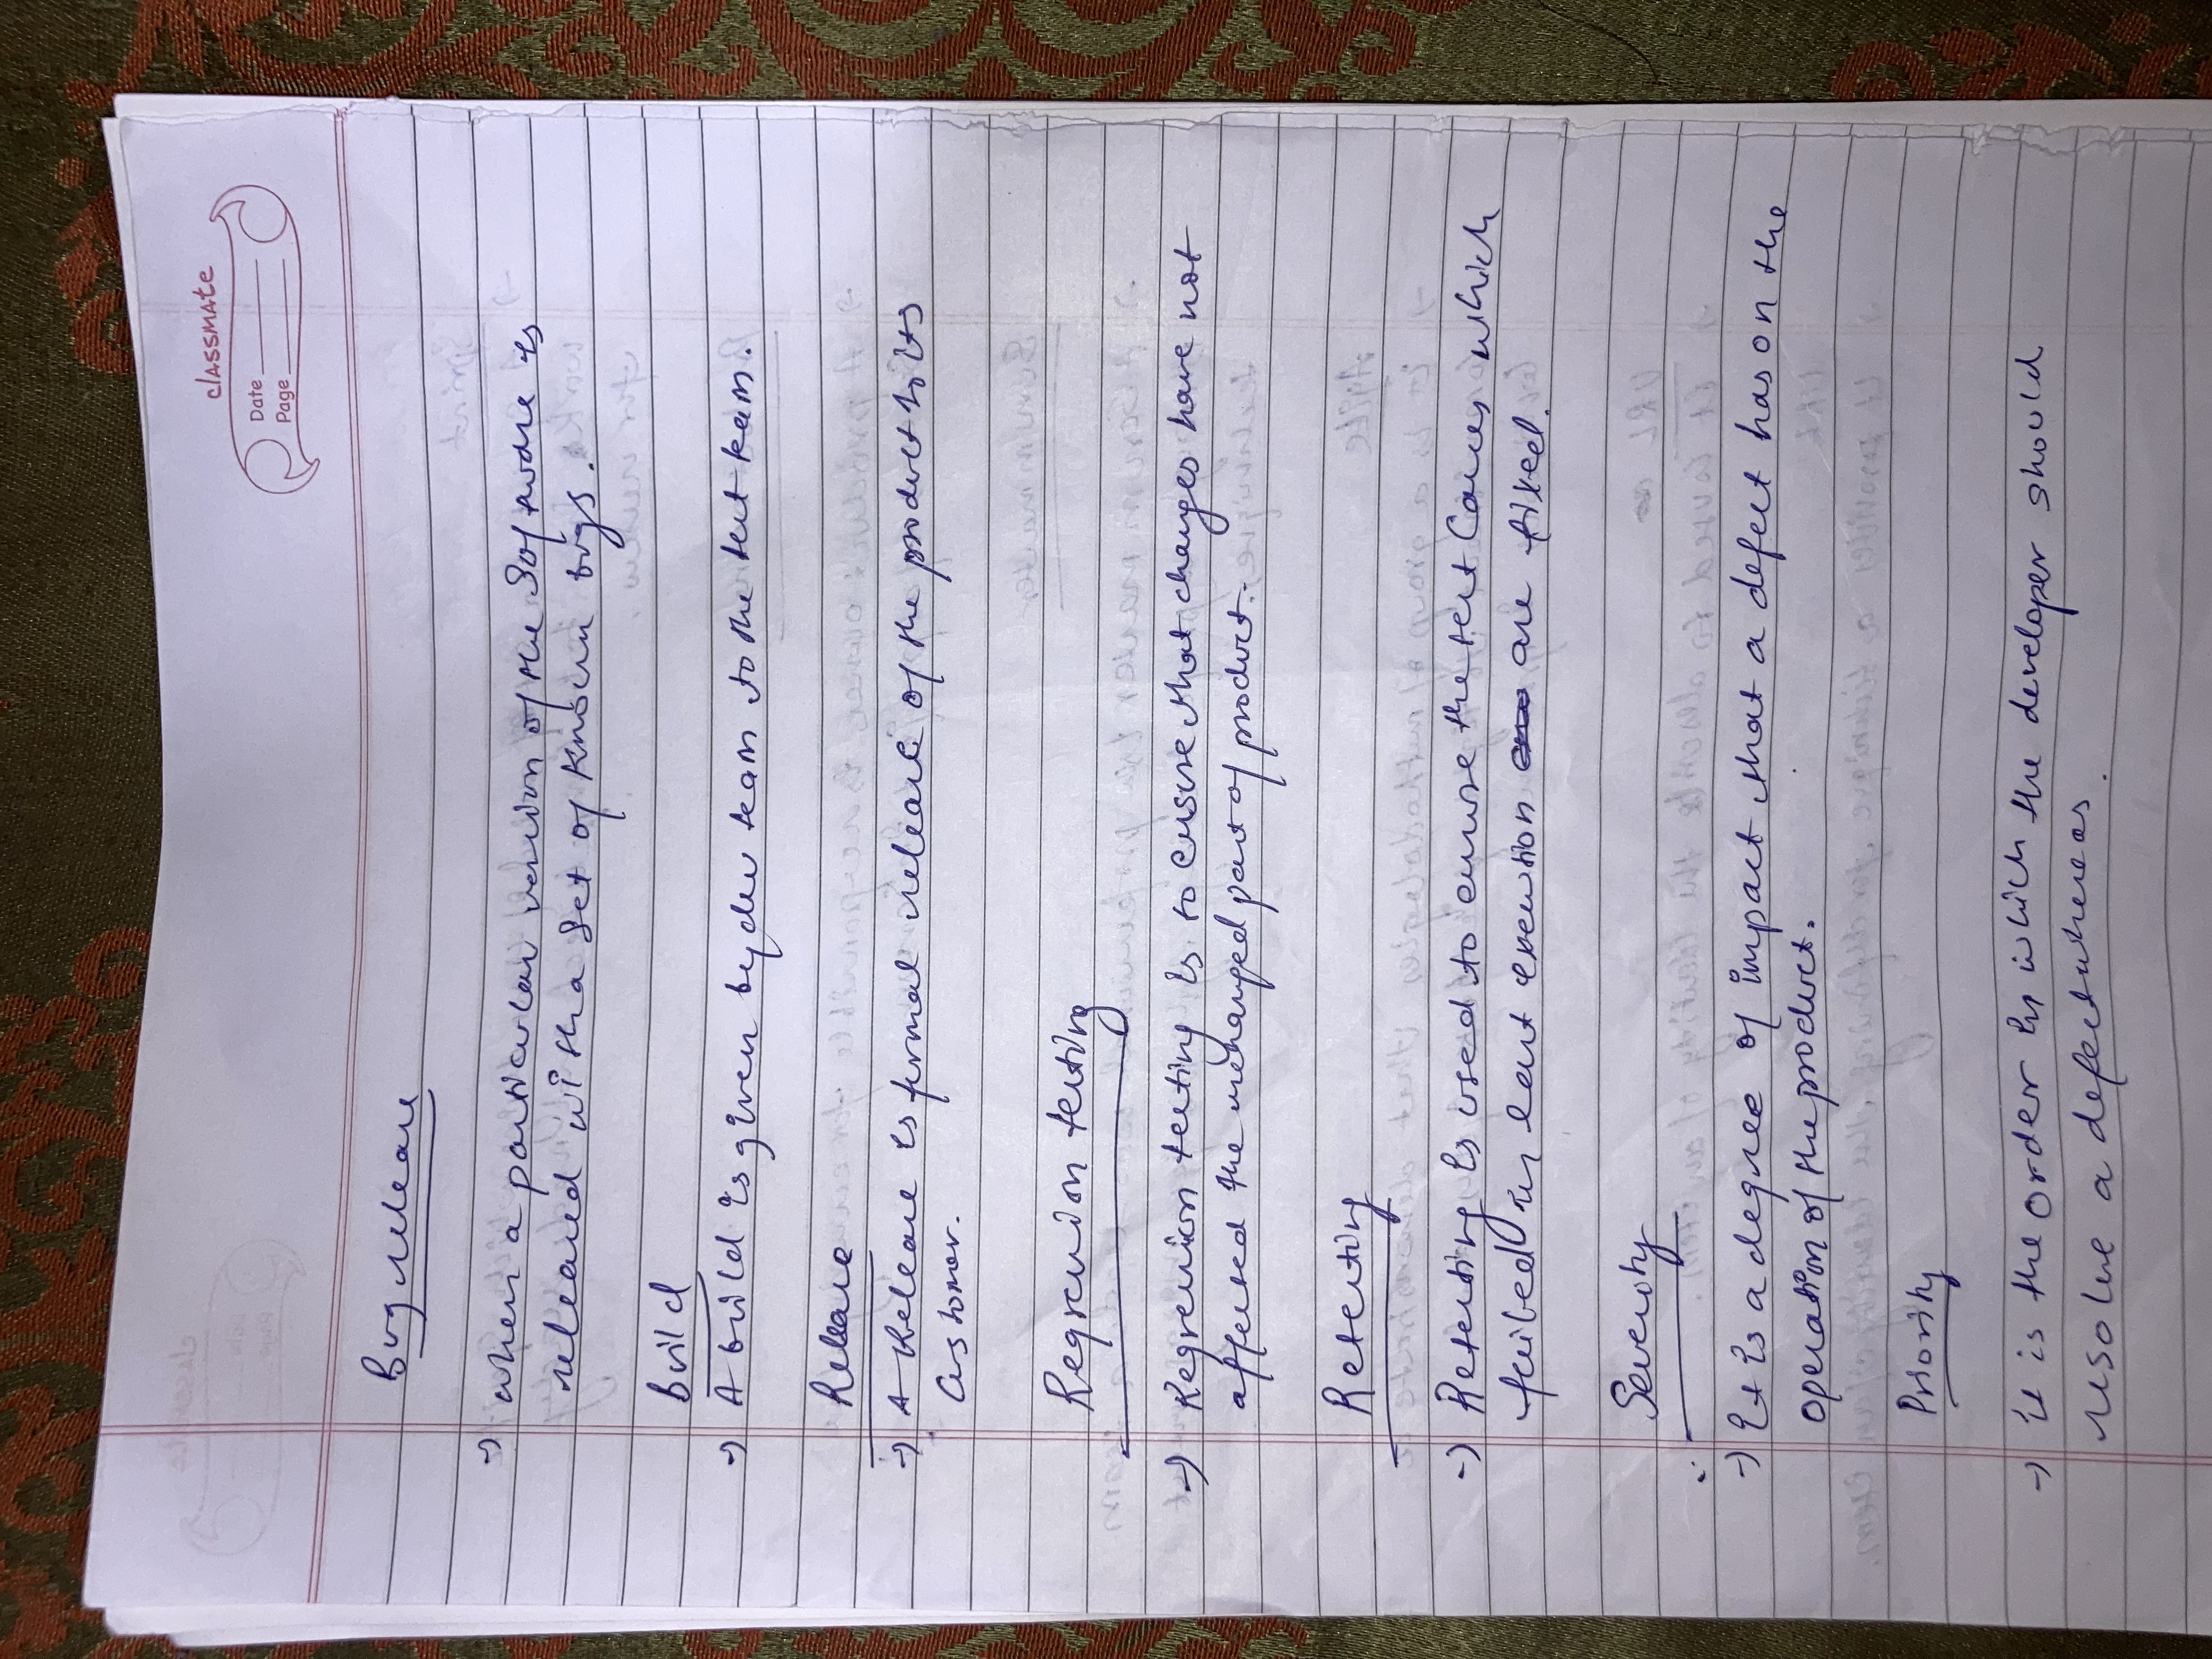 classmate
Date
Page
Bug release
→ when a particular version of the Software is
released with a Set of Known bugs.
Build
→ A build is given by dev team to the test team.
Release
→ A Release is formal release of the product to its
Customer.
Regression testing
→ Regression testing is to ensure that changes have not
affected the unchanged part of product.
Retesting
→ Retesting is used to ensure the test Cases which
failed in last execution are fixed.
Severity
→ It is a degree of impact that a defect has on the
operation of the product.
Priority
→ it is the order in which the developer should
resolve a defect whereas.